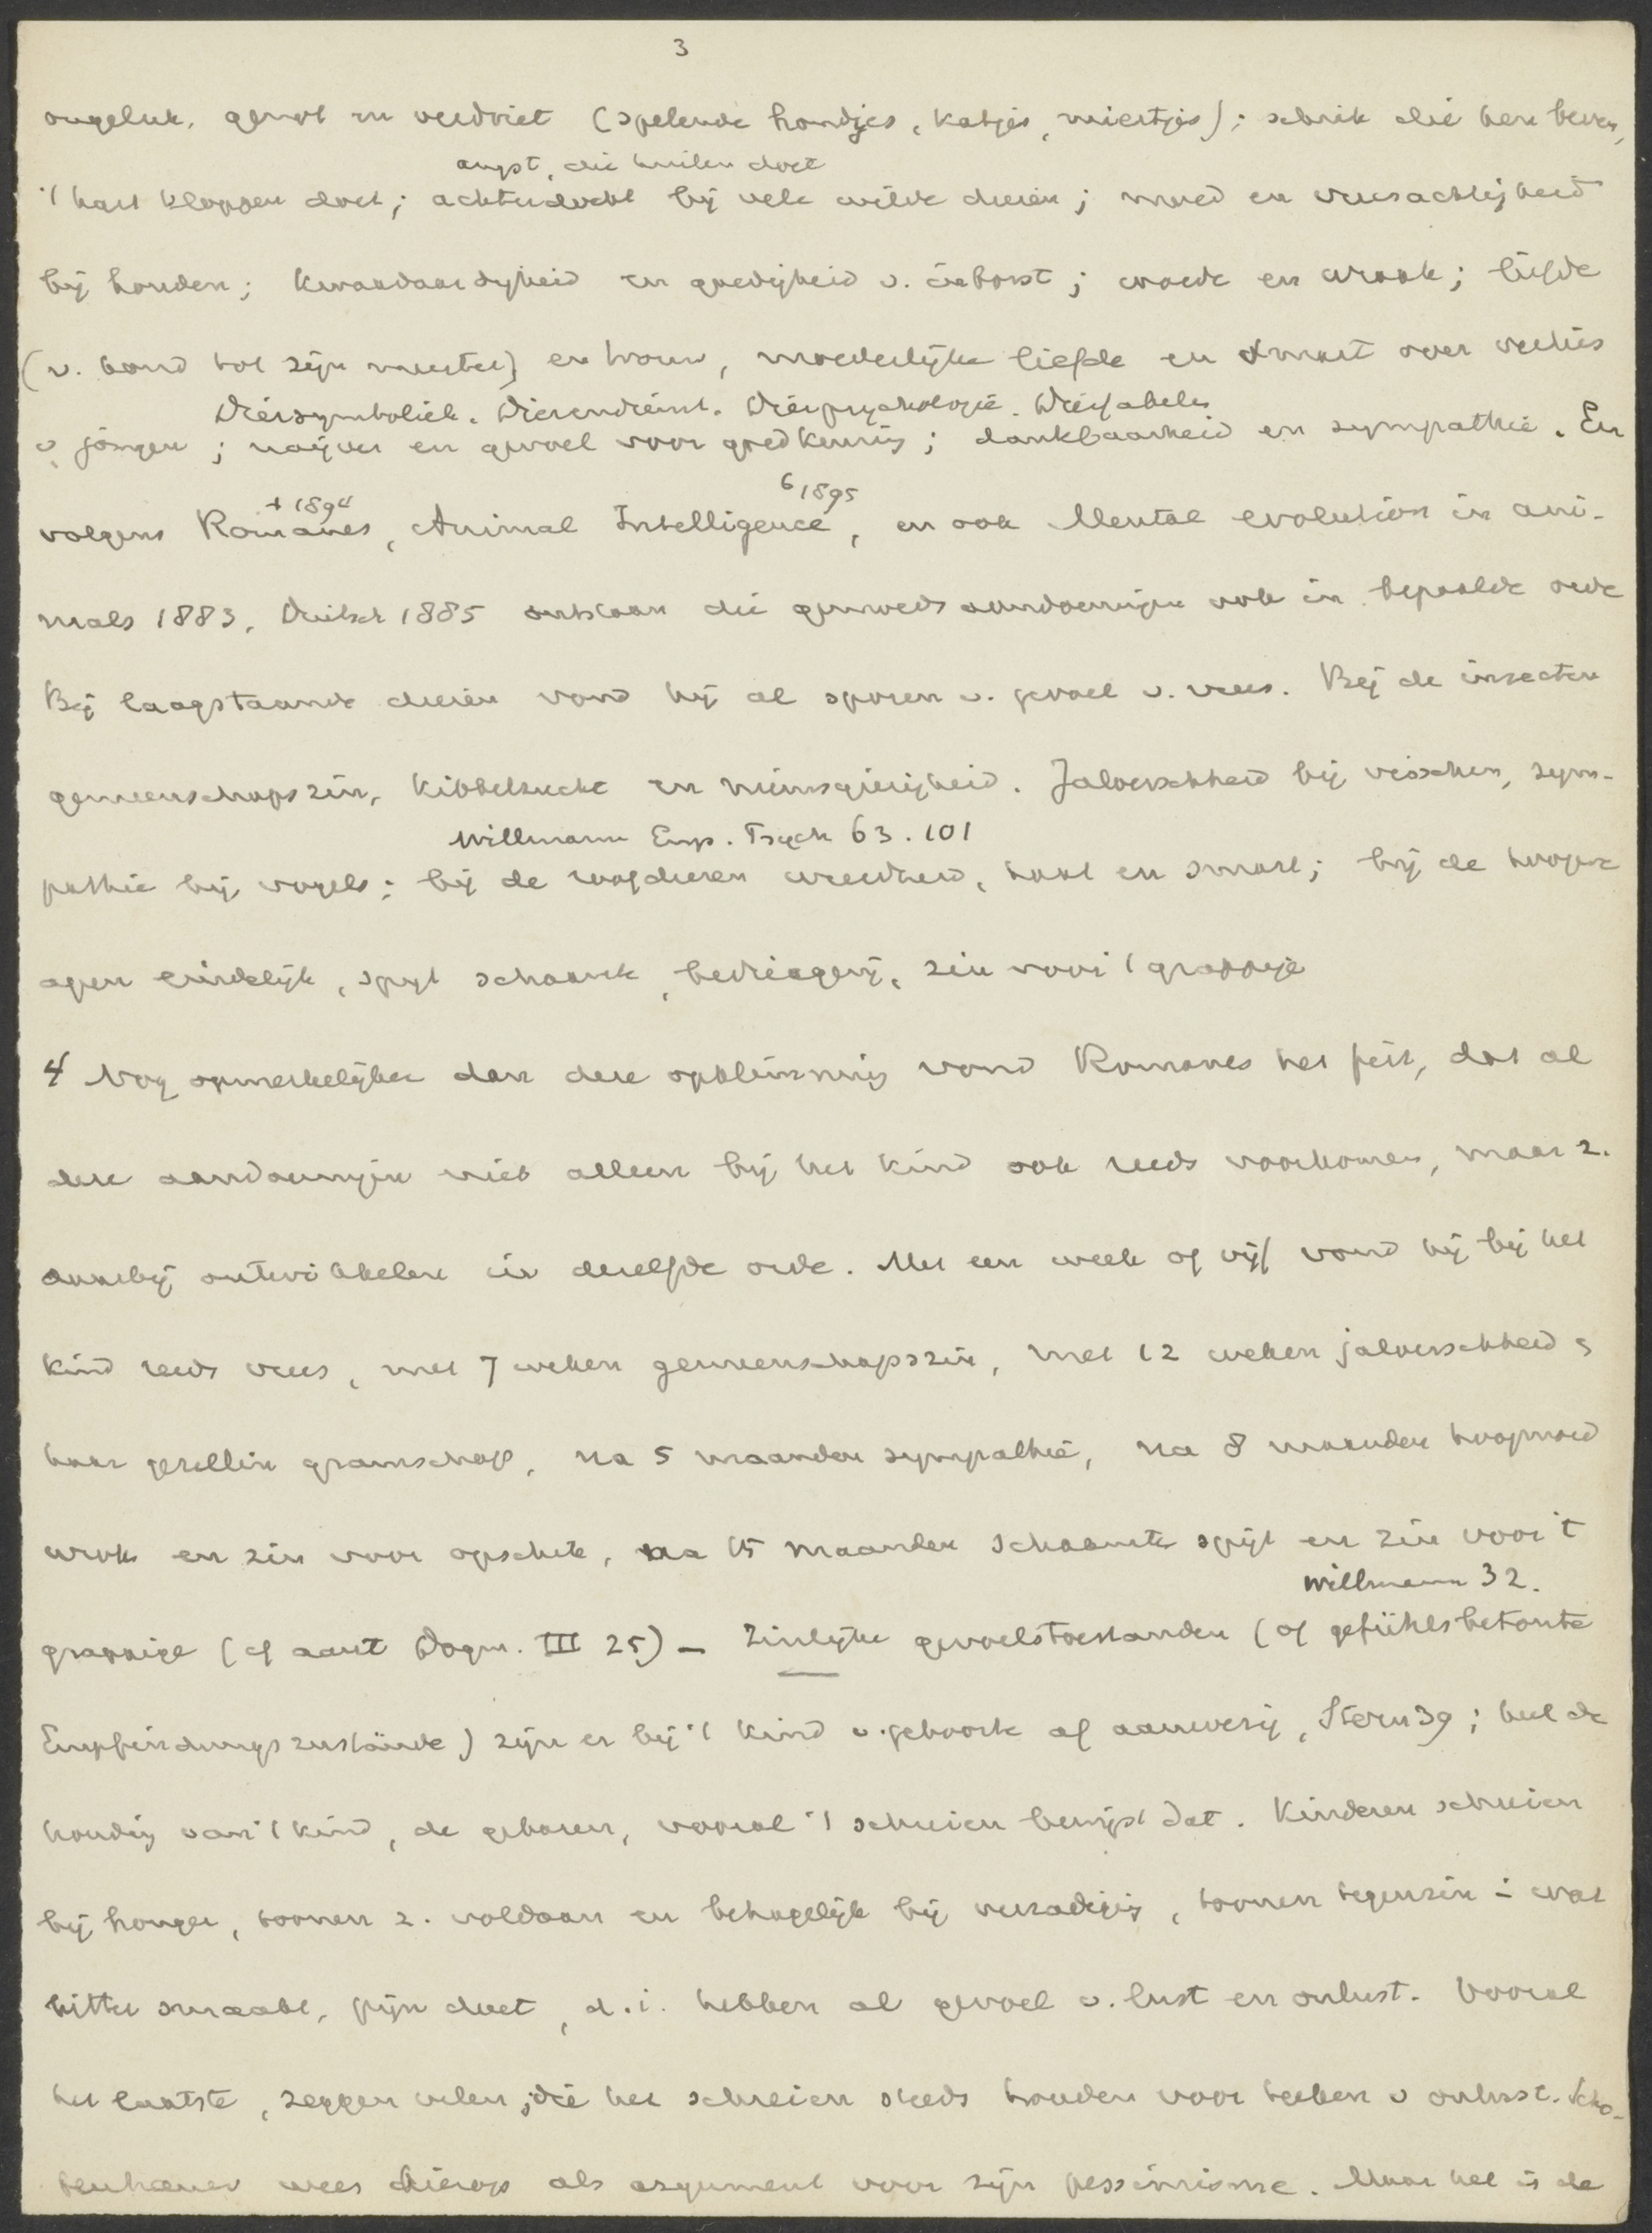 3
ongeluk, genot en verdriet (spelende hondjes, katjes, miertjes); schrik die hen beven,
angst, die huilen doet
't hart kloppen doet; achterdocht bij vele wilde dieren; moed en vreesachtigheid
bij honden; kwaadaardigheid en goedigheid v. inborst; woede en wraak; liefde
(v. hond tot zijn meester) en trouw, moederlijke liefde en smart over verlies
Diersymboliek. Dierendienst. Dierpsychologie. Dierfabels
v. jongen; naijver en gevoel voor goedkeuring; dankbaarheid en sympathie. En
† 1894 6 1895
volgens Romanes, Animal Intelligence, en ook Mental evolution in ani-
mals 1883, Duitsch 1885 ontstaan die gemoedsaandoeningen ook in bepaalde orde
Bij laagstaande dieren vond hij al sporen v. gevoel v. vrees. Bij de insecten
gemeenschapszin, kibbelzucht en nieuwsgierigheid. Jaloerschheid bij visschen, sym-
Willmann Emp. Psych 63. 101
pathie bij vogels; bij de roofdieren wreedheid, haat en smart; bij de hoogere
apen eindelijk, spijt schaamte, bedriegerij, zin voor 't grappige
4 Nog opmerkelijker dan deze opklimming vond Romanes het feit, dat al
deze aandoeningen niet alleen bij het kind ook reeds voorkomen, maar z.
daarbij ontwikkelen in dezelfde orde. Met een week of vijf vond hij bij het
kind reeds vrees, met 7 weken gemeenschapszin, met 12 weken jaloerschheid &
haar gezellin gramschap, na 5 maanden sympathie, na 8 maanden hoogmoed
wrok en zin voor opschik, na 15 maanden schaamte spijt en zin voor 't
Willmann 32.
grappige (cf aant Dogm. III 25) – Zinlijke gevoelstoestanden (of gefühlsbetonte
Empfindungszustände) zijn er bij 't kind v. geboorte af aanwezig, Stern 39; heel de
houding van 't kind, de gebaren, vooral 't schreien bewijst dat. Kinderen schreien
bij honger, toonen z. voldaan en behagelijk bij verzadiging, toonen tegenzin in wat
bitter smaakt, pijn doet, d.i. hebben al gevoel v. lust en onlust. Vooral
het laatste, zeggen velen, die het schreien steeds houden voor teeken v onlust. Scho-
penhauer wees hierop als argument voor zijn pessimisme. Maar het is de